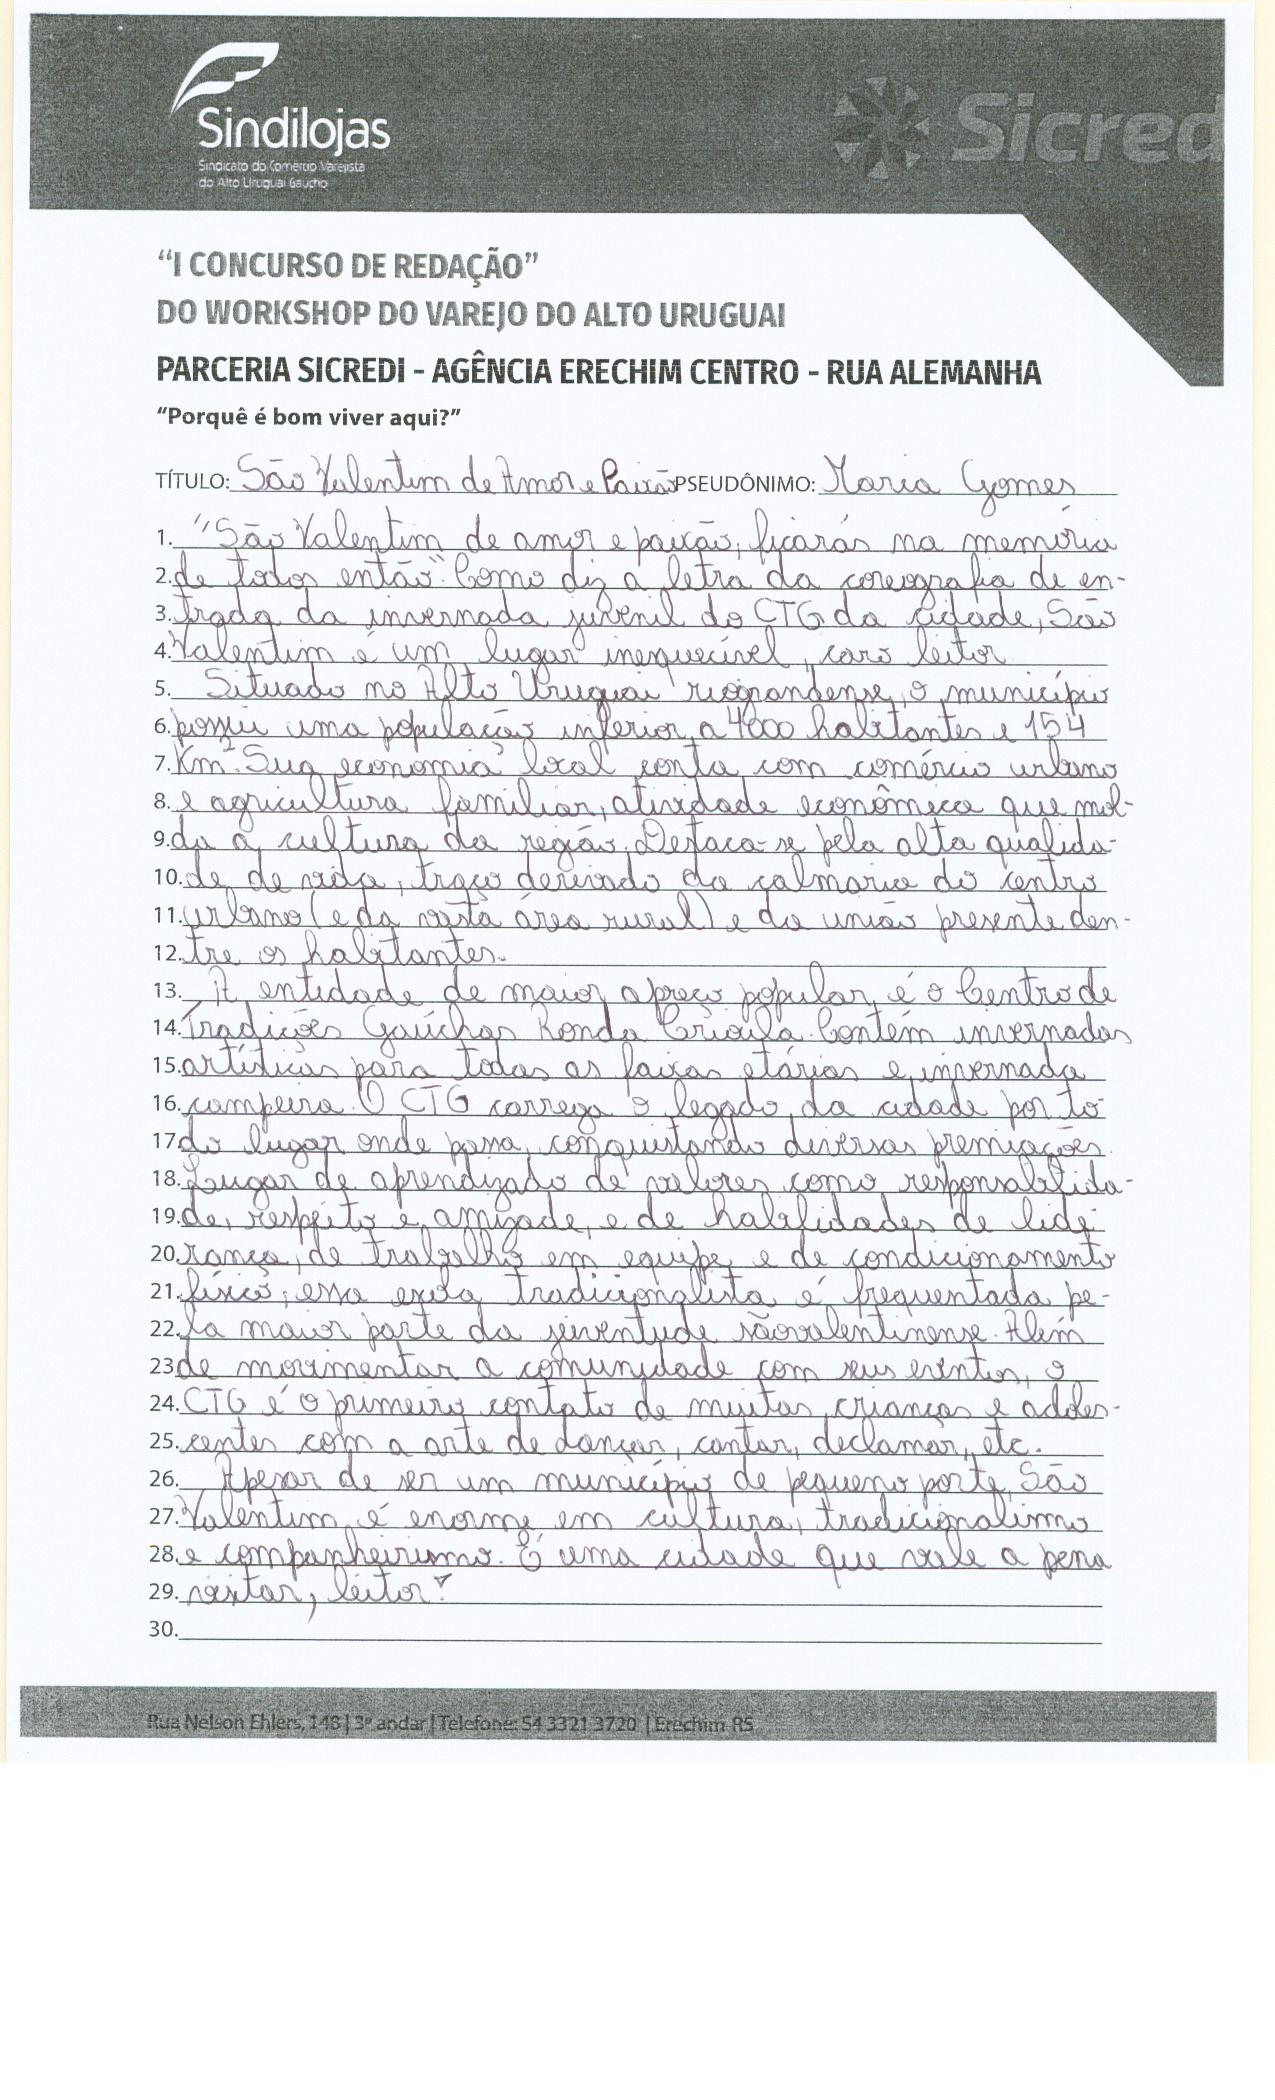 Sindilojas
Sindicato do Comércio Varejista
do Alto Uruguai Gaúcho
Sicred
“I CONCURSO DE REDAÇÃO”
DO WORKSHOP DO VAREJO DO ALTO URUGUAI
PARCERIA SICREDI - AGÊNCIA ERECHIM CENTRO - RUA ALEMANHA
“Porquê é bom viver aqui?”
TÍTULO: São Valentim de Amor e Paixão PSEUDÔNIMO: Maria Gomes
1. "São Valentim de amor e paixão, ficarás na memória
2. de todos então". Como diz a letra da coreografia de en-
3. trada da invernada juvenil do CTG da cidade, São
4. Valentim é um lugar inesquecível, caro leitor.
5. Situado no Alto Uruguai riograndense, o município
6. possui uma população inferior a 4000 habitantes e 154
7. Km². Sua economia local conta com comércio urbano
8. e agricultura familiar, atividade econômica que mol-
9. da a cultura da região. Destaca-se pela alta qualida-
10. de de vida, traço derivado da calmaria do centro
11. urbano (e da vasta área rural) e da união presente den-
12. tre os habitantes.
13. A entidade de maior apreço popular é o Centro de
14. Tradições Gaúchas Ronda Crioula. Contém invernadas
15. artísticas para todas as faixas etárias e invernada
16. campeira. O CTG carrega o legado da cidade por to-
17. do lugar onde passa, conquistando diversas premiações.
18. Lugar de aprendizado de valores como responsabilida-
19. de, respeito e amizade, e de habilidades de lide-
20. rança, de trabalho em equipe e de condicionamento
21. físico, essa exola tradicionalista é frequentada pe-
22. la maior parte da juventude sãovalentinense. Além
23. de movimentar a comunidade com seus eventos, o
24. CTG é o primeiro contato de muitas crianças e adoles-
25. centes com a arte de dançar, cantar, declamar, etc.
26. Apesar de ser um município de pequeno porte, São
27. Valentim é enorme em cultura, tradicionalismo
28. e companheirismo. É uma cidade que vale a pena
29. visitar, leitor!
30.
Rua Nelson Ehlers, 148 | 3º andar | Telefone: 54 3321 3720 | Erechim-RS